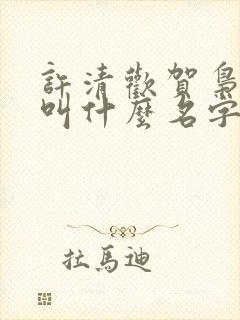 許清歡賀梟
叫什麼名字
拉馬迪